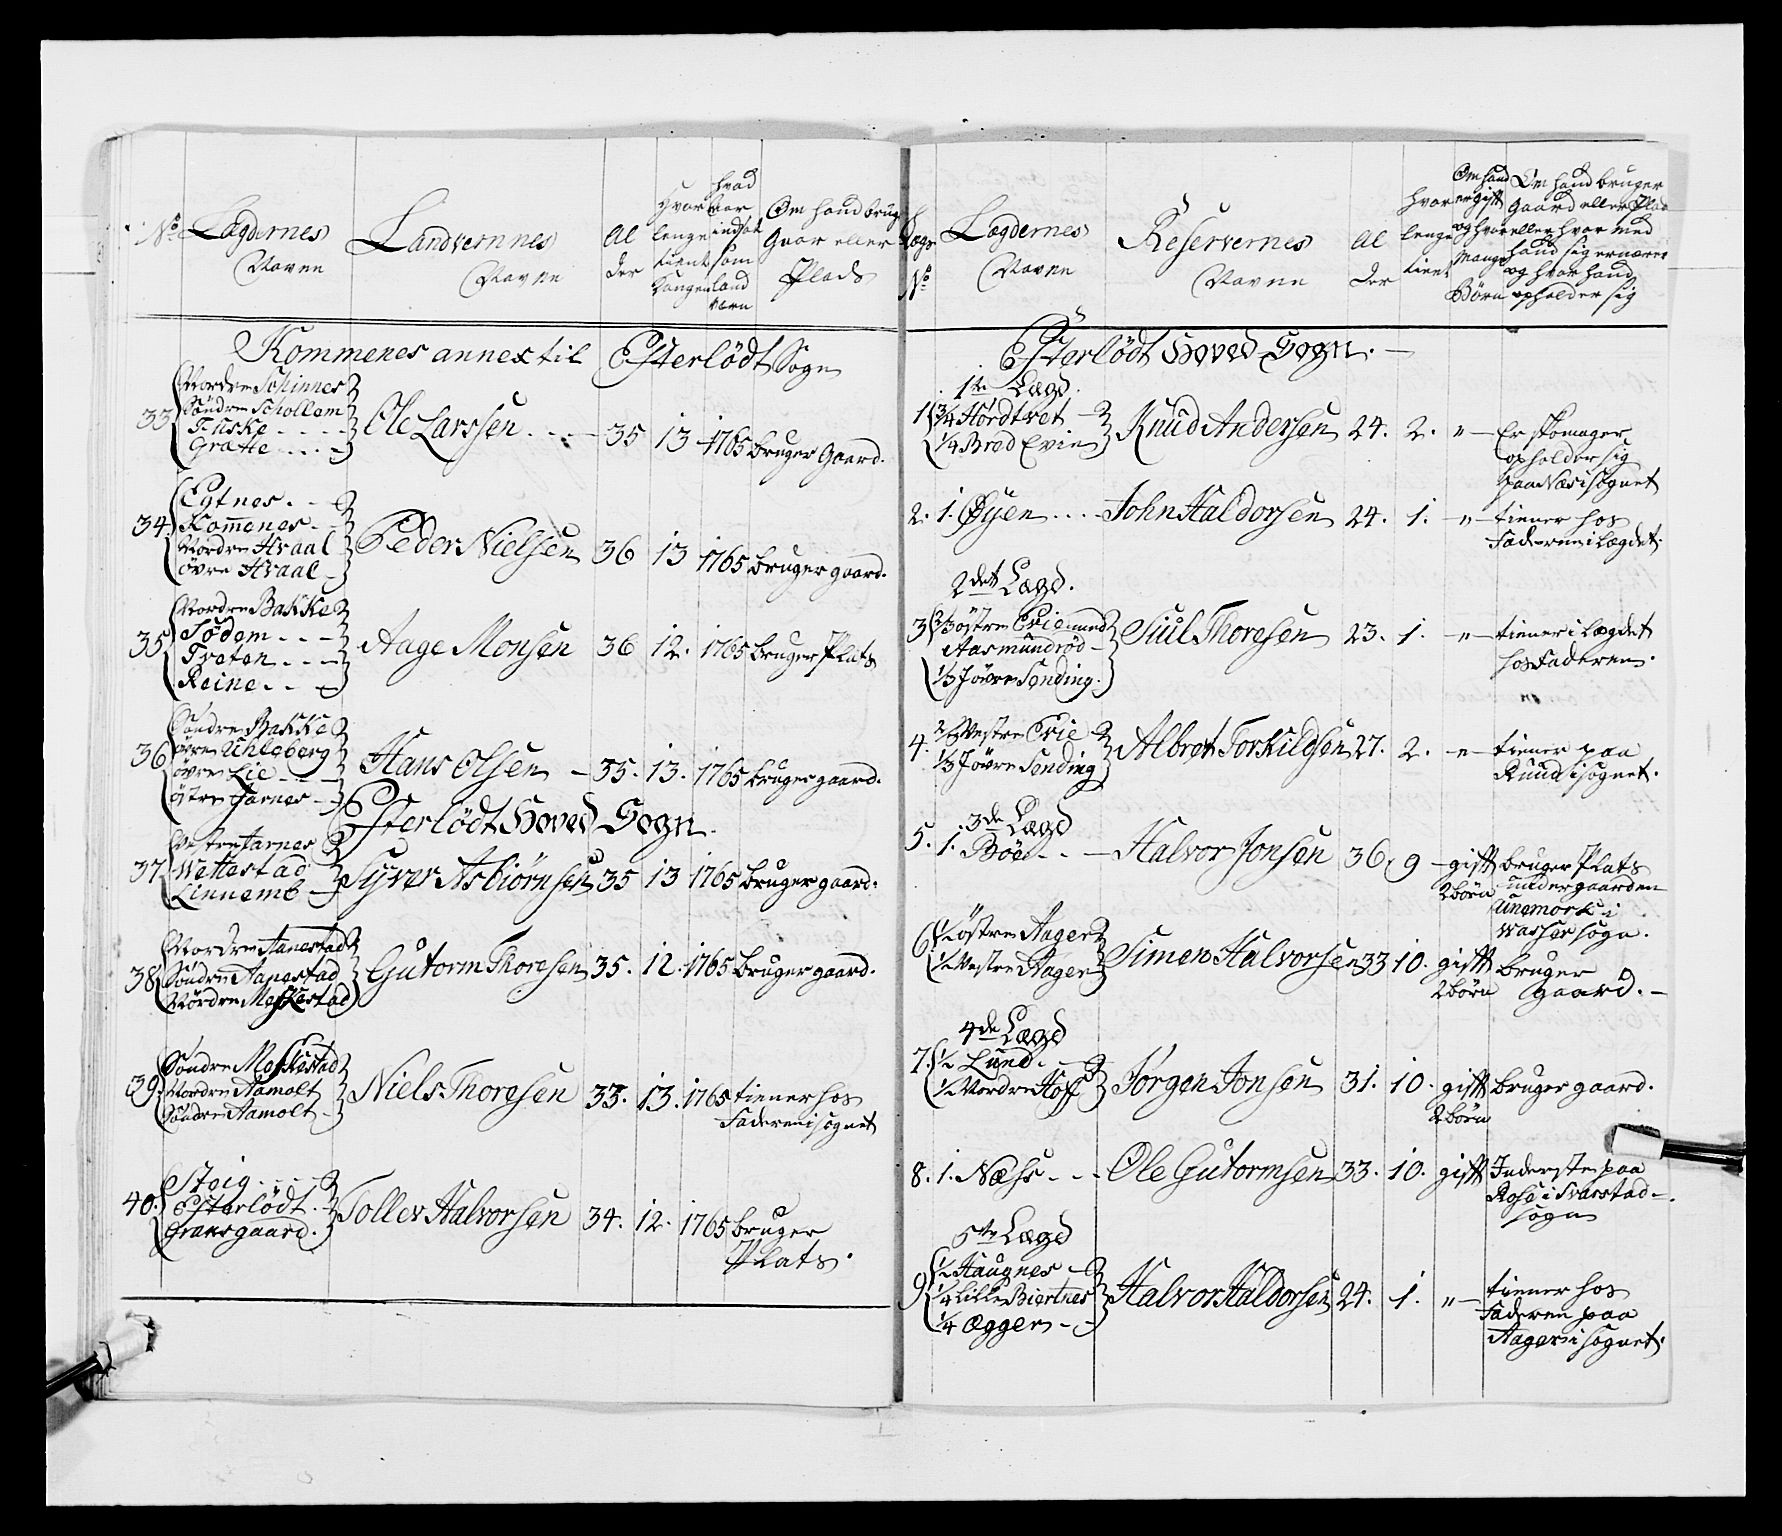 No. Lægdernes Navne
Landvernnes Navne
Al der
Hvor lenge tient Kongen
hvad aar indsat som land værn
Om hand brug Gaar eller Plads
Kommenes annex til Efterlödt Sogn
33 Nordre Schinnes
Söndre Schollem
Fuske
Gratte
Ole Larssen 35 13 1765 bruger Gaard.
34. Egtnes
Kom̄enes
Nordre Hvaal
övre Hvaal
Peder Nielsen 36 13 1765 bruger gaard.
35 Nordre Bakke
Södem
Tveten
Reine
Aage Monsen 36 12. 1765 bruger Plats
36 Söndre Bakke
övre Uhleberg
övre Lie
ytre Jarnes
Hans Olsen 35. 13. 1765 bruger gaard.
Efterlödt Hoved Sogn.
37 Vestre Jarnes
Wettestad
Linnemb
Syver Asbiörnsen 35 13 1765 bruger gaard.
38 Nordre Aanestad
Söndre Aanestad
Nördre Meskestad
Gutorm Thoresen 35. 12. 1765 bruger gaard.
39. Söndre Meskestad
Nordre Aamolt
Söndre Aamolt
Niels Thoresen 33. 13. 1765 tiener hos
Faderen i sognet
40. Steig
Efterlödt
Gransgaard.
Tollev Halvorsen 34. 12. 1765 bruger
Plats.
Lægs No.
Lægdernes Navne
Reservernes Navne
Al der
hvor lenge tient
Om hand er gift og hvor mange Börn
Om hand bruger
Gaard eller Plad
eller hvor med
hand sig ernærer
og hvor hand
opholder sig
Efterlödt Hoved Sogn.
1te Lægd.
1 3/4 Hördtvet
1/4 Bred Evie
Knud Andersen 24. 2. " Er skomager
opholder sig
paa Næs i sognet
2. 1. Öyen John Haldorsen 24. 1. " tiener hos
Faderen i Lægdet.
2det Lægd.
3 2/3 östre Erie med
Aasmundröd
1/3 Jövre Sending.
Siul Thoresen 23. 1. " tiener i Lægdet
hos Faderen.
4. 2/3 Vestre Erie
1/3 Jövre Sending
Albret Torkildsen 27. 2. " tiener paa
Ruud i sognet.
3de Lægd
5. 1. Böe Halvor Jonsen 36. 9 gift bruger Plats
2 börn under gaarden
Unemork i
Wasser sogn.
6 1/2 östre Aager
1/2 Vestre Aager
Simen Halvorsen 33 10. gift bruger
2 börn gaard.
4de Lægd
7. 1/2 Lund.
1/2 Nordre Hoff
Jörgen Jonsen 31. 10. gift bruger gaard.
2 börn
8. 1. Næss Ole Gutormsen 33. 10. gift Inderste paa
Rose i Svarstad
sogn
5te Lægd
9 1/2 Haugnes
1/4 Lille Biertnes
1/4 Ægger
Halvor Haldorsen 24. 1. " tiener hos
Faderen paa
Aager i sognet.